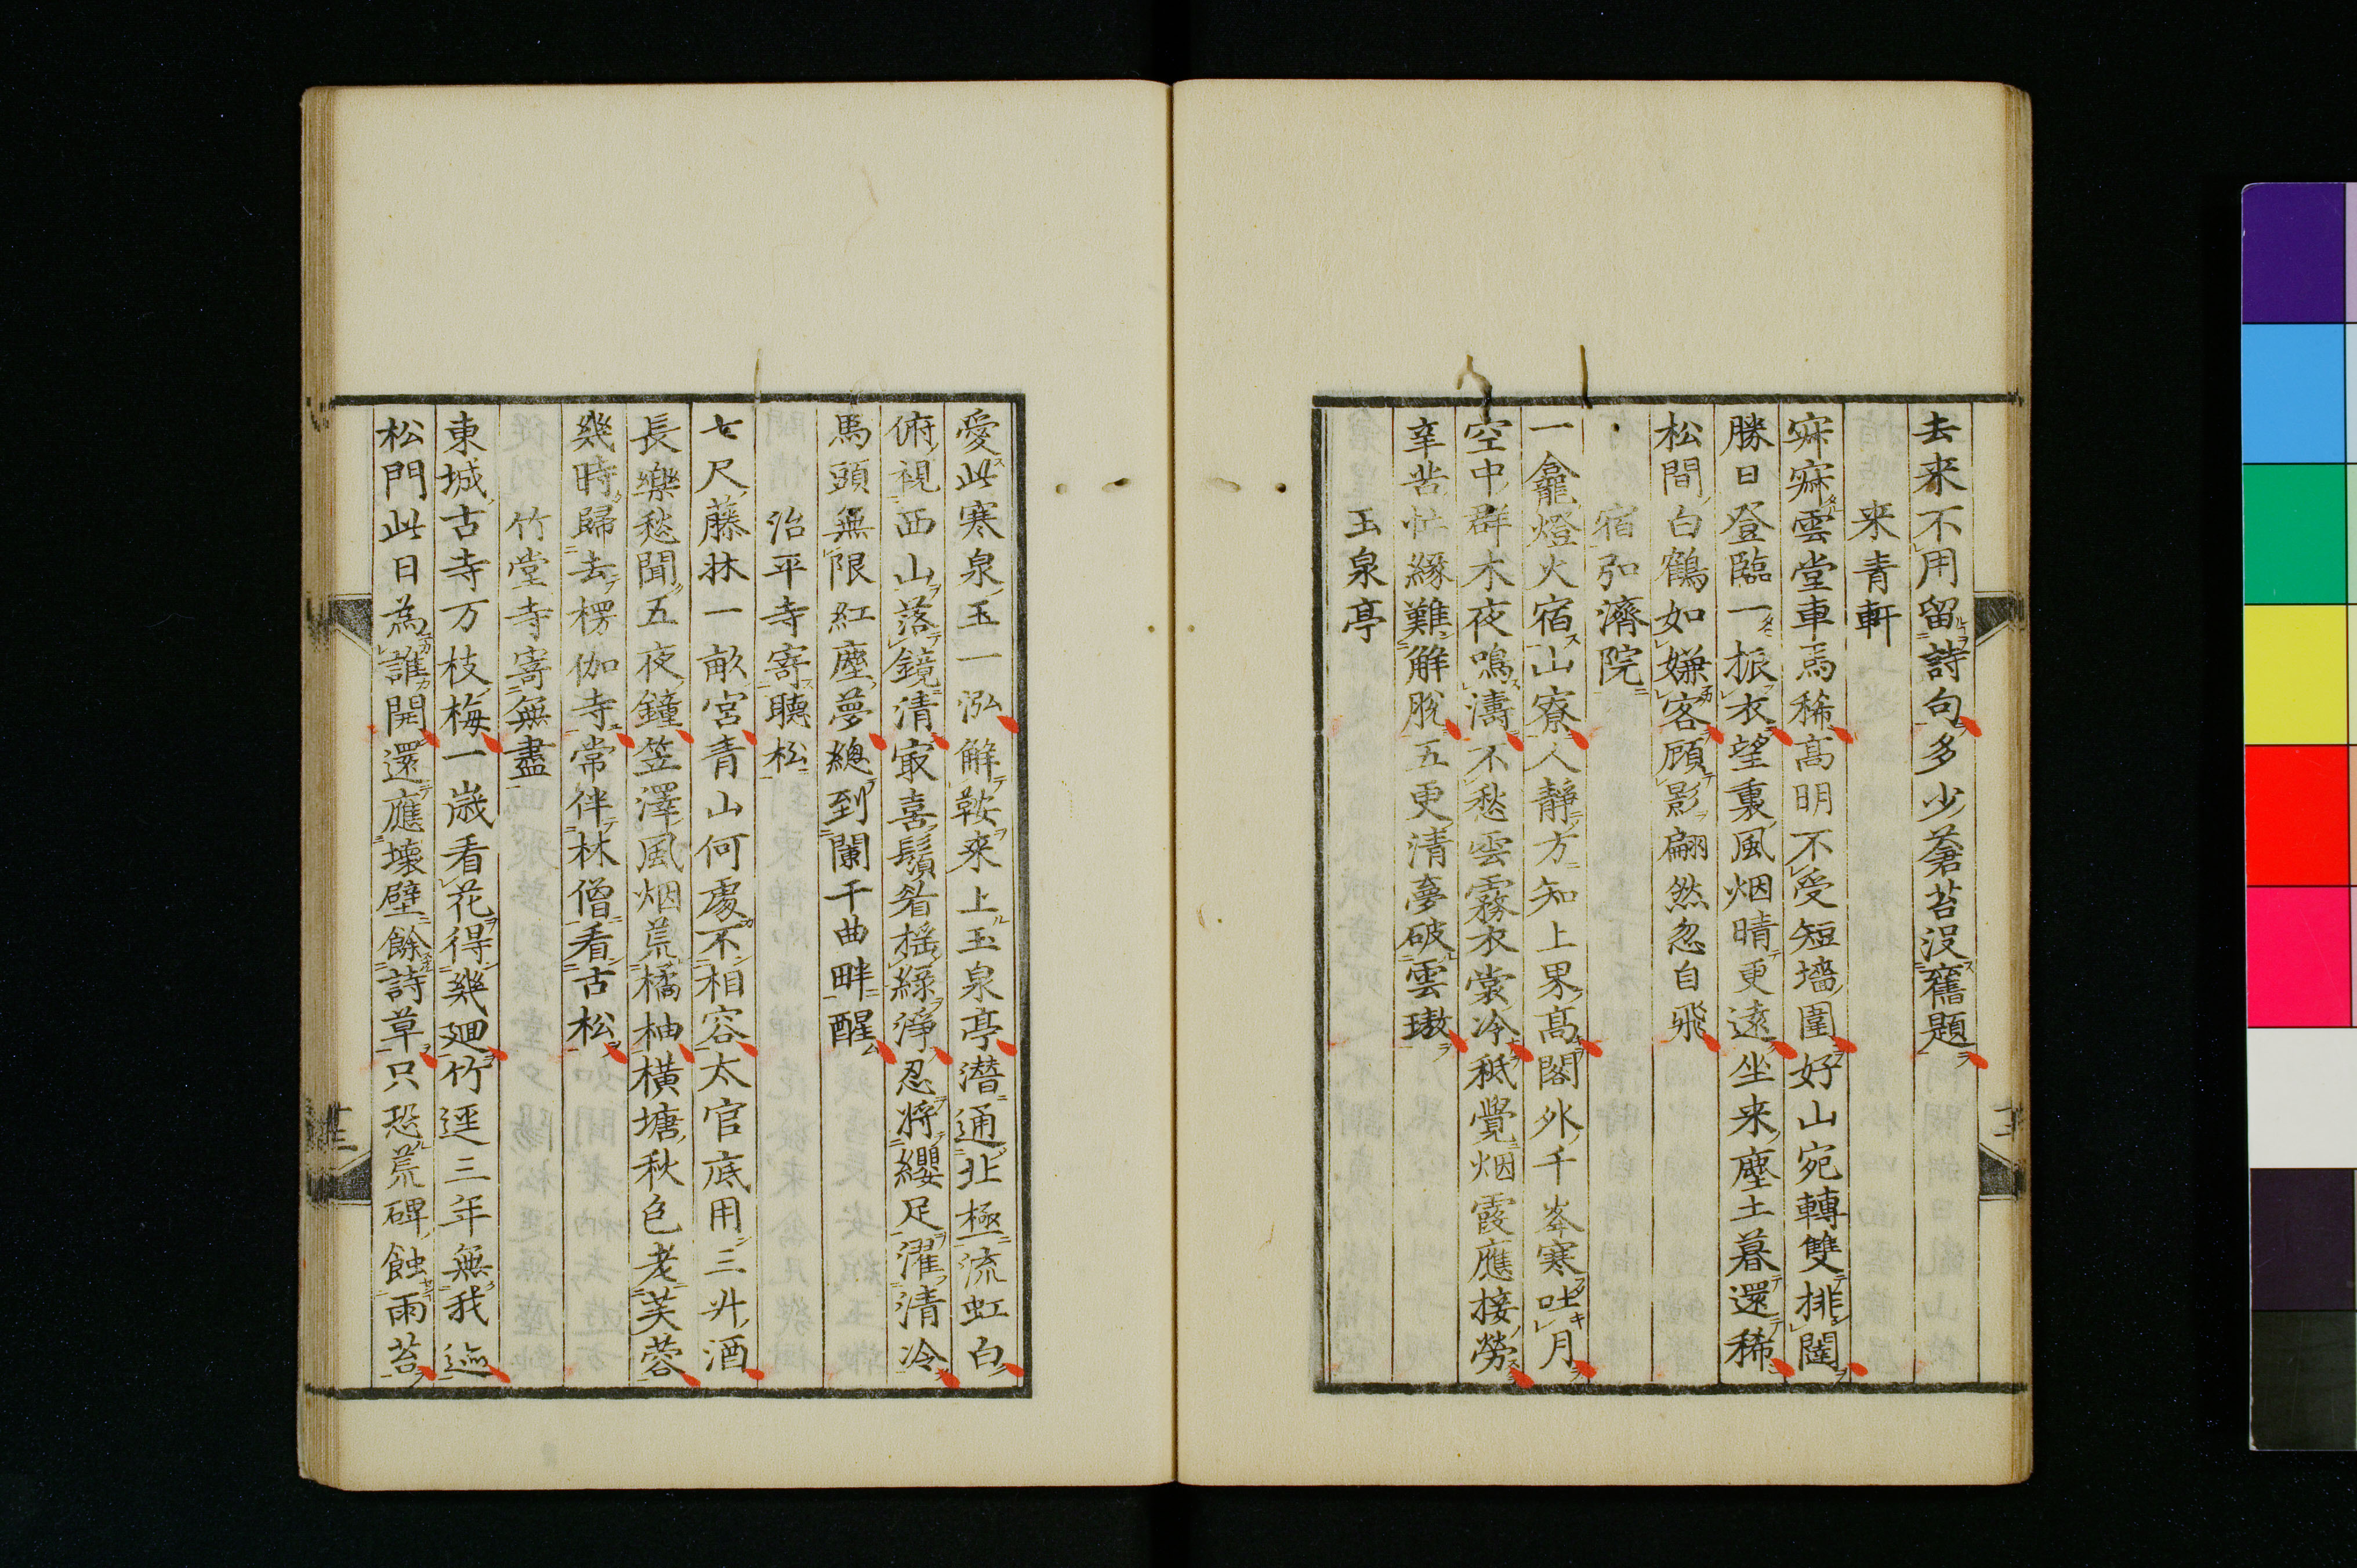 去来不用留詩句多少蒼苔没舊題
来青軒
寐寐雲堂車馬稀高明不受短墻圍好山宛轉雙排闥
勝日登臨一振衣望裏風烟晴更遠坐来塵土暮還稀
松間白鶴如嫌客顧影翩然忽自飛
宿弘濟院
一龕燈火宿山寮人靜方知上界高閣外千峯寒吐月
空中群木夜鳴濤不愁雲霧衣裳冷秪覺烟霞應接勞
辛苦忙緣難解脫五更清夢破雲璈
玉泉亭
愛此寒泉玉一泓解鞍来上玉泉亭潜通北極流虹白
俯視西山落鏡清㝡喜鬚眉揺綠淨忍將纓足濯清冷
馬頭無限紅塵夢總到闌干曲畔醒
治平寺寄聽松
七尺藤牀一畝宮青山何處不相容太官底用三升酒
長樂愁聞五夜鐘笠澤風烟荒橘柚橫塘秋色老芙蓉
幾時歸去楞伽寺常伴林僧看古松
竹堂寺寄無盡
東城古寺万枝梅一歲看花得幾廻竹逕三年無我迹
松門此日為誰開還應壞壁餘詩草只恐荒碑蝕雨苔